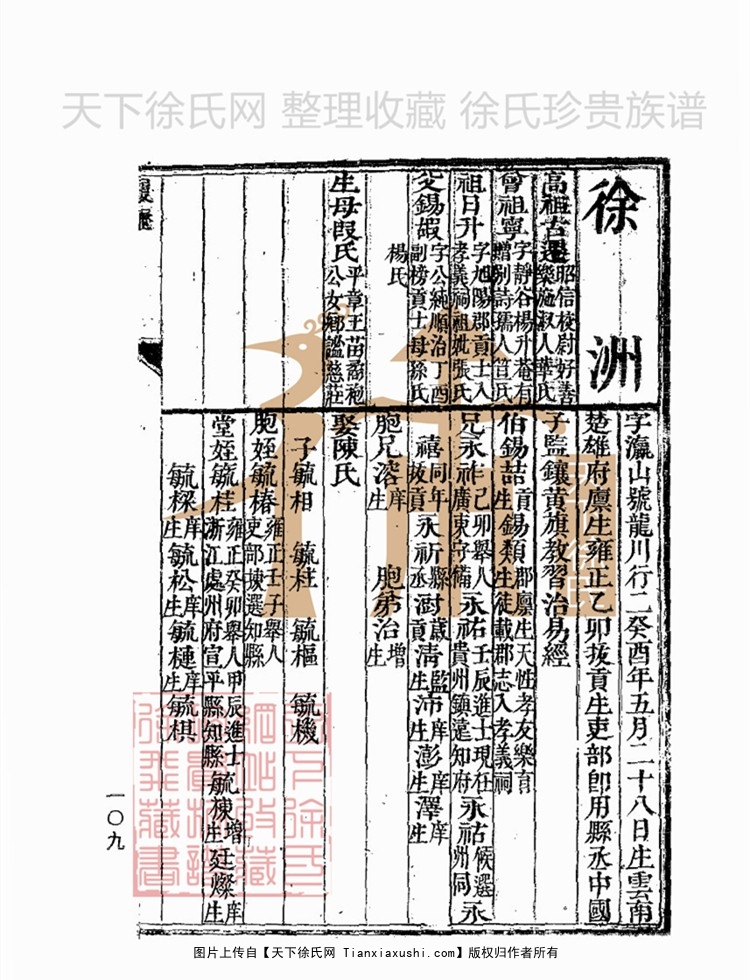 天下徐氏网 整理收藏 徐氏珍贵族谱
徐洲
字瀛山號龍川行二癸酉年五月二十八日生雲南
楚雄府廩生雍正乙卯拔貢生吏部卽用縣丞中國
子監鑲黃旗教習治易經
高祖吉遷昭信校尉好善樂施淑人華氏
曾祖寧字靜谷楊升菴有贈別詩孺人笪氏
祖日升字旭陽郡貢士入孝義祠祖妣張氏
父錫嘏字公純順治丁酉副榜貢士母孫氏
楊氏
生母段氏平章王苗裔袍公女鄉謚慈莊
伯錫喆貢生錫類郡廩生天性孝友樂育生徒載郡志入孝義祠
兄永祚己卯舉人廣東守備永祐壬辰進士現任貴州鎮遠知府永祜候選州同永
禧同年拔貢永祈縣丞澍歲貢淸監生沛庠生澎庠生澤庠生
胞兄溶庠生 胞弟治增生
娶陳氏
子毓相 毓柱 毓樞 毓機
胞姪毓椿雍正壬子舉人吏部揀選知縣
堂姪毓桂雍正癸卯舉人甲辰進士浙江處州府宣平縣知縣毓棟增生廷燦庠生
毓樑庠生毓松庠生毓槤庠生毓棋
履歷
一〇九
图片上传自【天下徐氏网 Tianxiaxushi.com】版权归作者所有